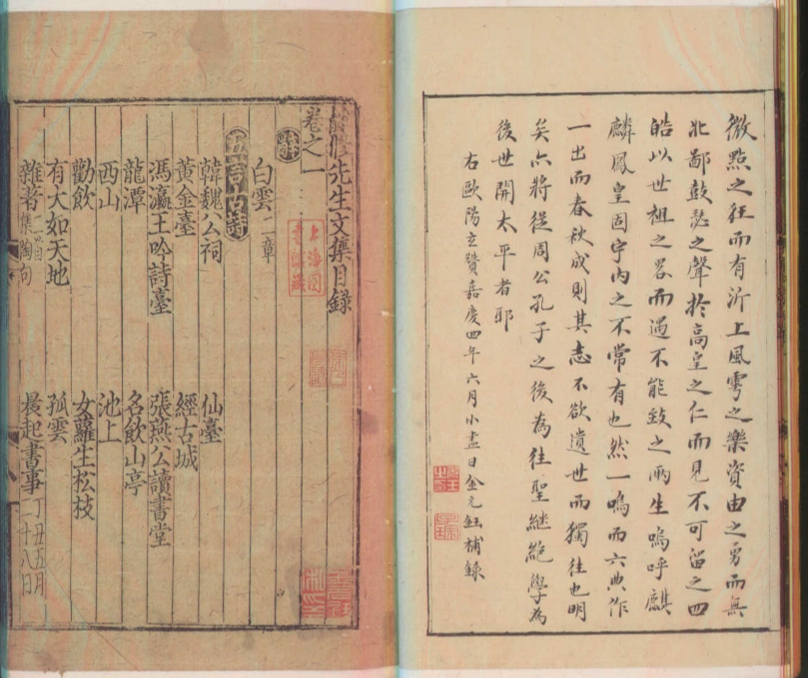 微點之狂而有沂上風雩之樂資由之勇而無
北鄙鼓瑟之聲於高皇之仁而見不可留之四
皓以世祖之畧而遇不能致之兩生嗚呼麒
麟鳳皇固宇內之不常有也然一鳴而六典作
一出而春秋成則其志不欲遺世而獨往也明
矣亦將從周公孔子之後為往聖繼絕學為
後世開太平者耶
右歐陽玄贊嘉慶四年六月小盡日金元鈺補錄
先生文集目錄
卷之一
上海圖書館藏
辭
白雲二章
五言古詩
韓魏公祠 仙臺
黃金臺 經古城
馮瀛王吟詩臺 張燕公讀書堂
龍潭 名飲山亭
西山 池上
勸飲 女蘿生松枝
有大如天地 孤雲
雜著集陶句 晨起書事丁丑五月二十八日